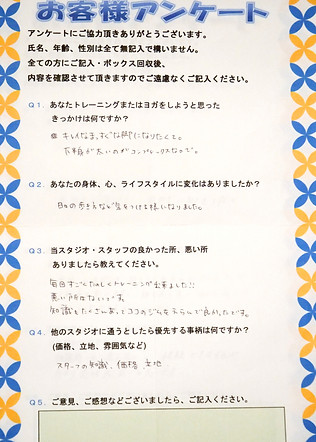 お客様アンケート
アンケートにご協力頂きありがとうございます。
氏名、年齢、性別は全て無記入で構いません。
全ての方にご記入・ボックス回収後、
内容を確認させて頂きますのでご遠慮なくご記入ください。
Q1. あなたトレーニングまたはヨガをしようと思った
きっかけは何ですか？
キレイなまっすぐな脚になりたくて。
下半身が太いのがコンプレックスなので。
Q2. あなたの身体、心、ライフスタイルに変化はありましたか？
日々の歩き方など気をつける様になりました。
Q3. 当スタジオ・スタッフの良かった所、悪い所
ありましたら教えてください。
毎回すごくたのしくトレーニング出来ました!!
悪い所はないです。
知識もたくさんあってココのジムをえらんで良かったです。
Q4. 他のスタジオに通うとしたら優先する事柄は何ですか？
(価格、立地、雰囲気など)
スタッフの知識、価格、立地
Q5. ご意見、ご感想などございましたら、ご記入ください。